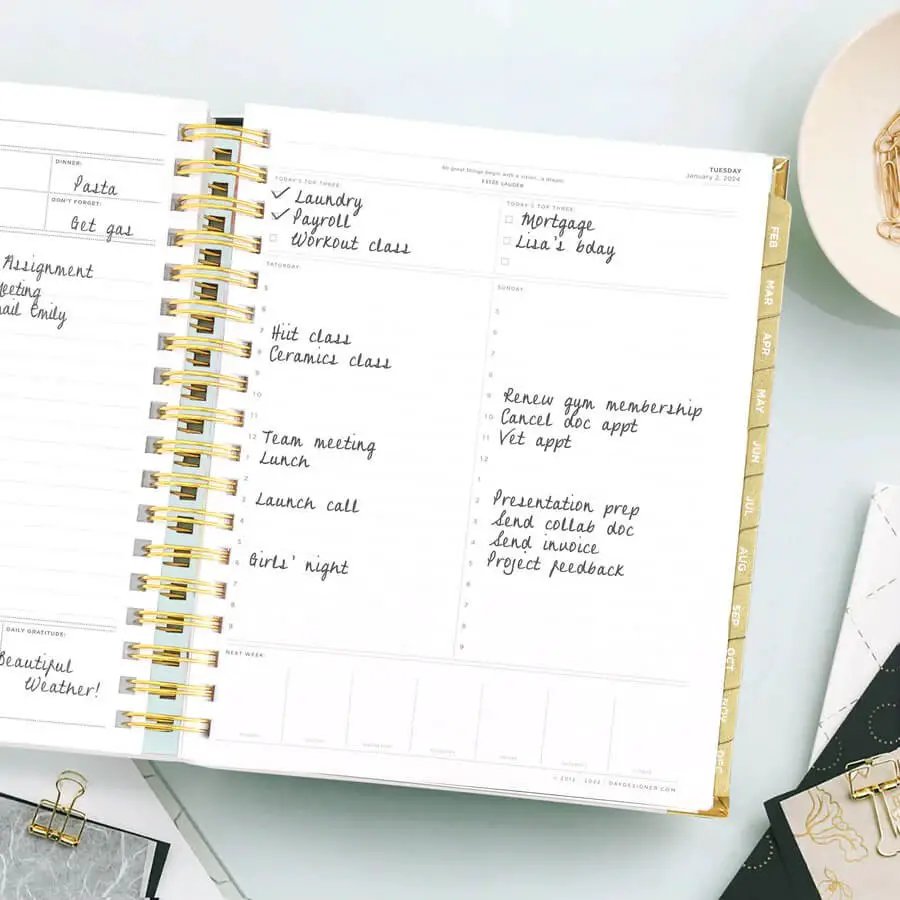 DINNER:
Pasta
DON'T FORGET:
Get gas
Assignment
Meeting
Emily
DAILY GRATITUDE:
Beautiful
Weather!
All great things begin with a vision...a dream.
ESTEE LAUDER
TUESDAY
January 2, 2024
TODAY'S TOP THREE:
Laundry
Payroll
Workout class
TODAY'S TOP THREE:
Mortgage
Lisa's bday
SATURDAY:
5
7
Hiit class
8
Ceramics class
10
11
12
Team meeting
Lunch
2
3
Launch call
4
5
6
Girls' night
7
8
9
SUNDAY:
5
6
7
8
9
Renew gym membership
10
Cancel doc appt
11
Vet appt
12
1
2
Presentation prep
3
Send collab doc
4
Send invoice
5
Project feedback
6
7
8
9
NEXT WEEK:
© 2012 - 2022 | DAYDESIGNER.COM
FEB
MAR
APR
MAY
JUN
JUL
AUG
SEP
OCT
NOV
DEC